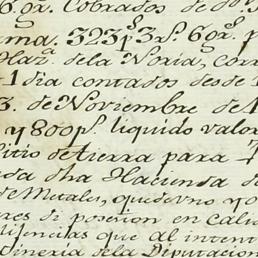 6 gr.s Cobrados de d.n
ma. 323 p.s 3 r.s 6 gr.s p
Haz.a dela Noria, corr
1 dia contados desde
3. de Noviembre de 1
y 800 p.s liquido valor
sitio de tierra para
da dha Hacienda de
de Metales, que devno yo
res di posecion en calid
diligencias que al intent
Mineria dela Diputacion